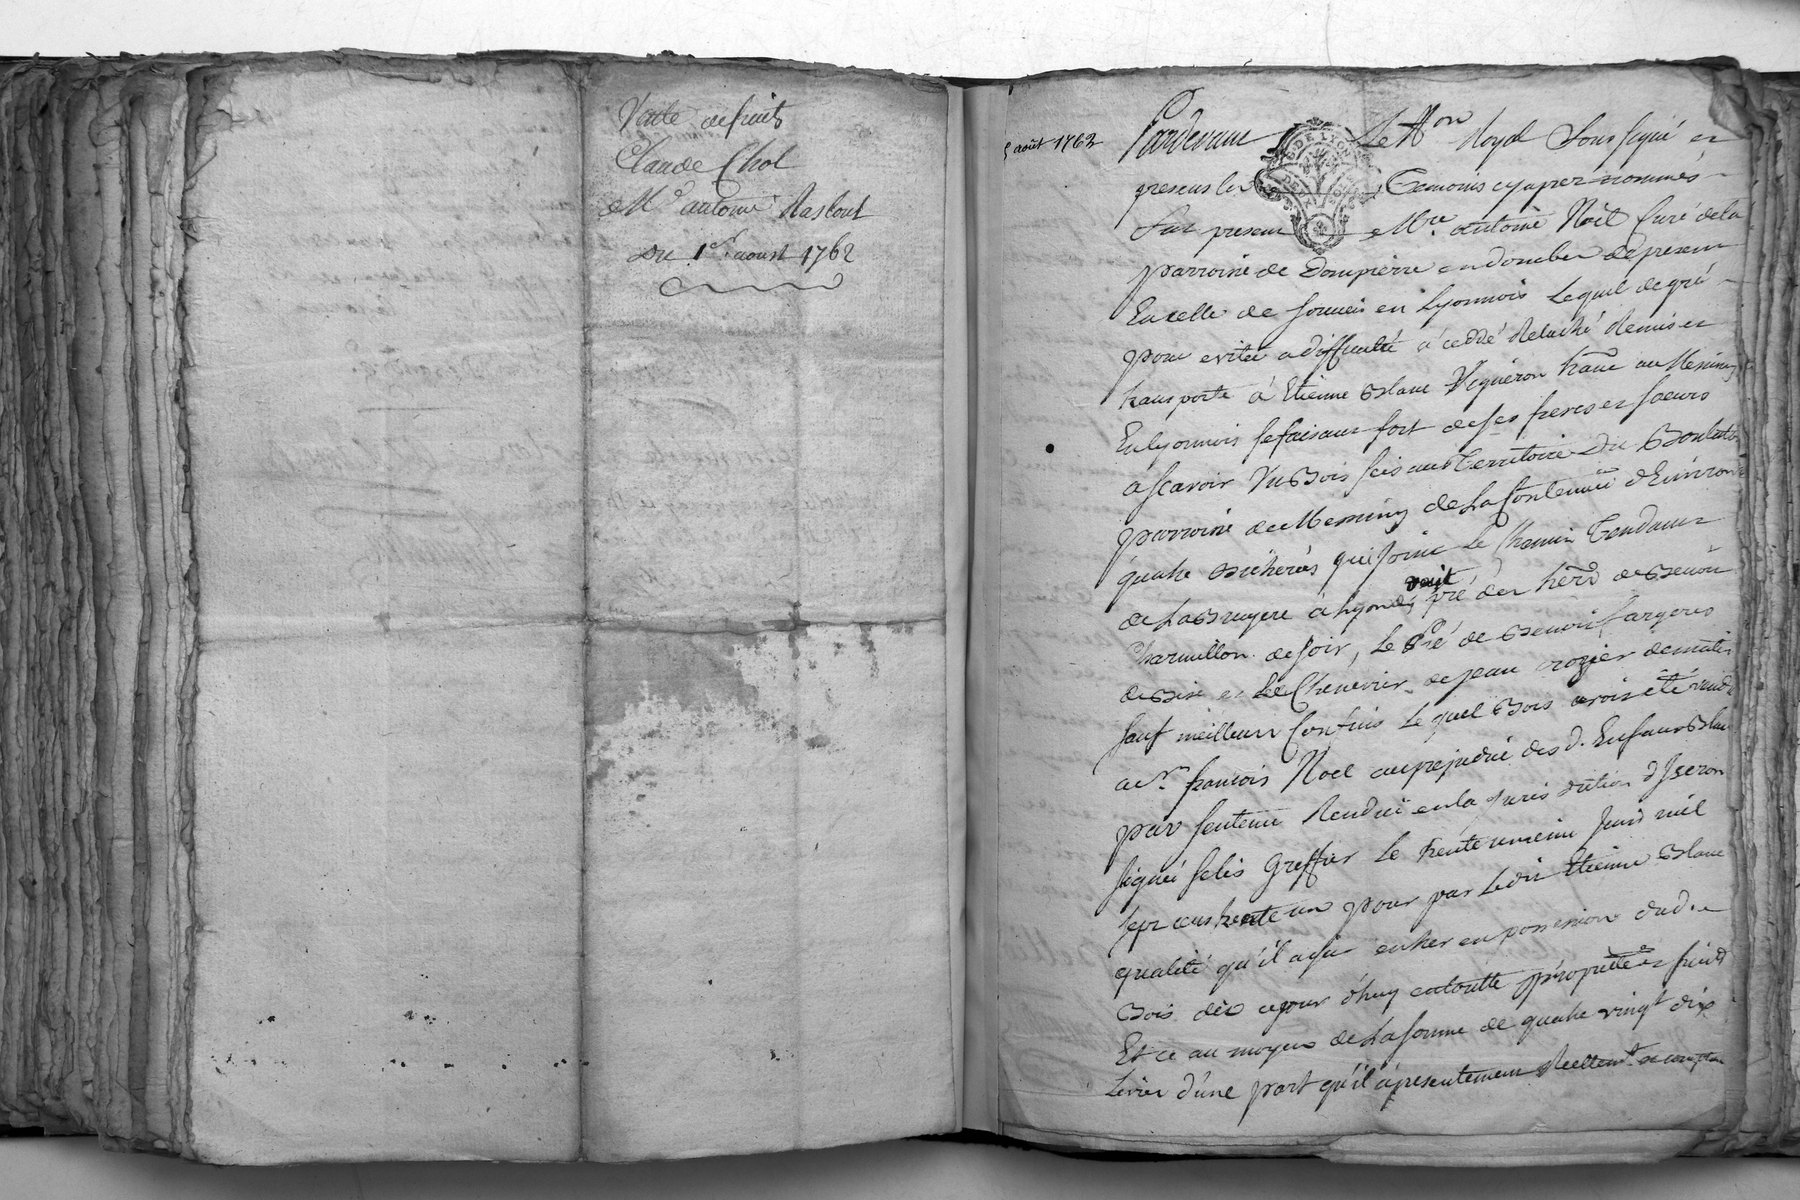 Vente de fruits
Claude Chol
a Mr antoine Rastout
du 1er aoust 1762
5 août 1762
Pardevant Le Nre Royal Sous signé et
presens les Temoins cy apres nommés
fut present Mre. antoine Noël Curé de la
parroisse de Dompierre en dombes de present
En celle de en Lyonnois Lequel de gré
pour eviter a difficulté a ceddé Relaché Remis et
transporté à Etienne Blanc Vigneron hãnt au Messimy
En lyonnois se faisant fort de ses freres et soeurs
a scavoir Un Bois scis au Territoire Du
parroisse de Messimy de La Contenue d'Environ
quatre Bicherées qui Joint Le Chemin Tendant
de La Bruyere à Lyon de vent pré des herd de Benoit
Charmillon de soir, Le Pré de Benoit fargeres
de Bise et Le Chenevier de jean crozier de matin
sauf meilleurs Confins Le quel Bois avoit été vendu
a sr. francois Noel au prejudice des d. Enfans Blanc
par sentence Rendue en la Jurisdiction d'Iseron
signée felis Greffier Le trente unieme Juin mil
sept cens trente un pour par Ledit Etienne Blanc
qualité qu'il agit entrer en possession dud.
Bois dès ce jour d'huy en toutte proprieté et fruits
Et ce au moyen de La somme de quatre vingt dix
Livres d'une part qu'il a presentement Reellemt. et comptant